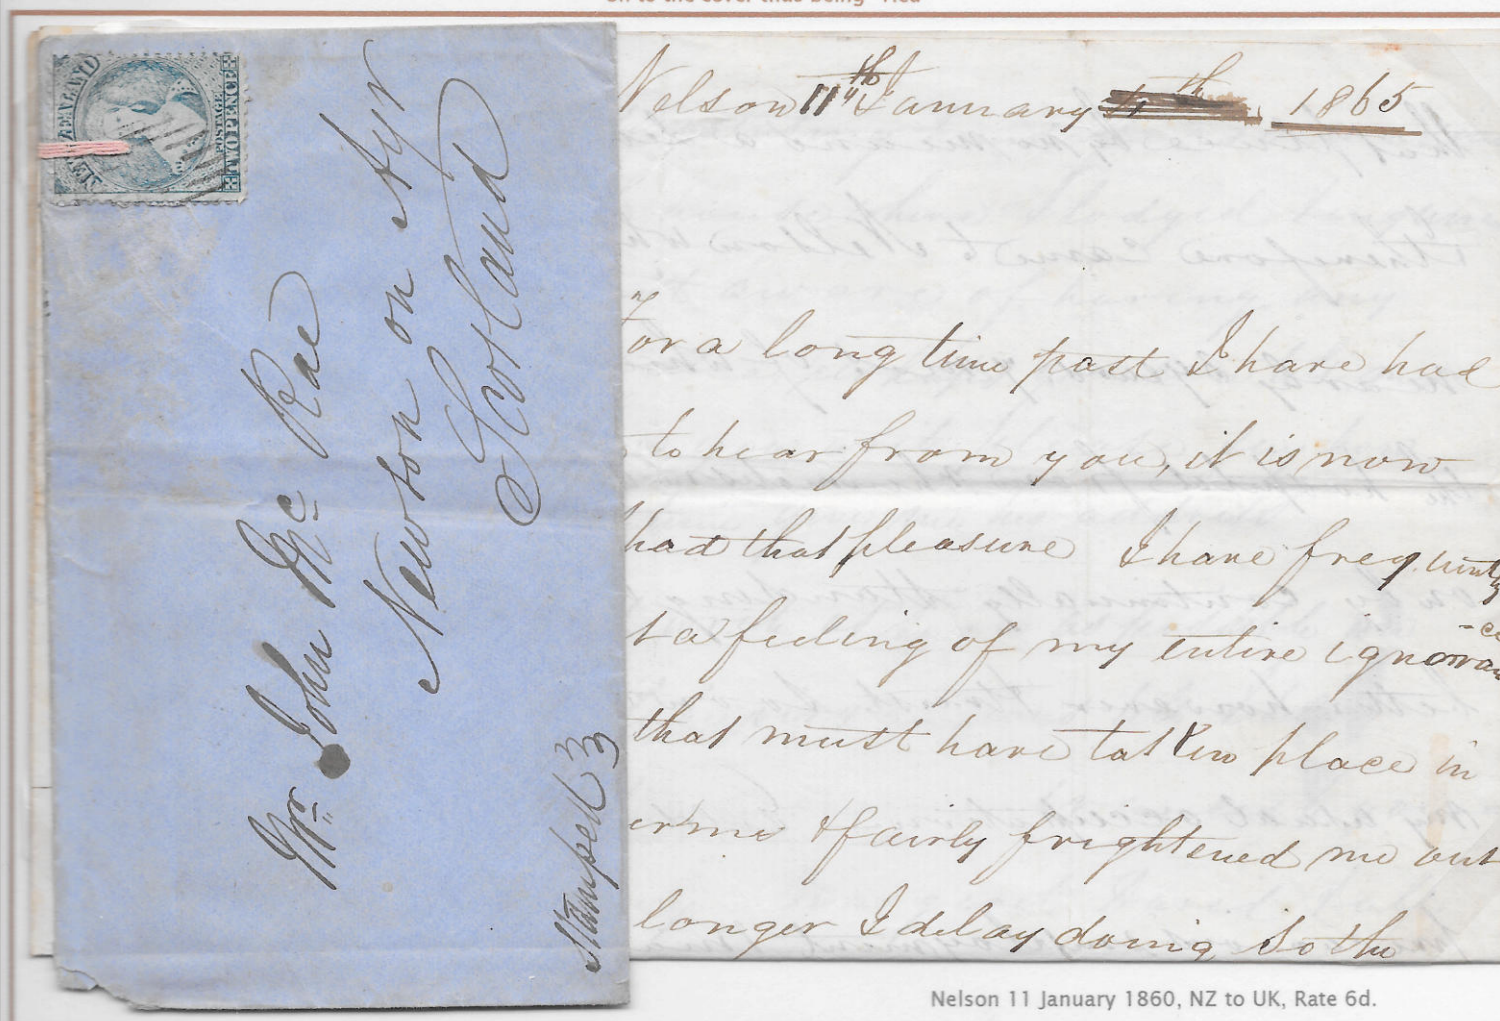 on to the cover thus being "tied"
NEW ZEALAND
POSTAGE
TWO PENCE
Mr. John Mc Rae
Newton on Ayr
Scotland
Stamped
Nelson 11th January 1865
For a long time past I have had
to hear from you, it is now
had that pleasure I have frequently
t a feeling of my entire ignoran
-ce
that must have taken place in
& fairly frightened me out
longer I delay doing so the
Nelson 11 January 1860, NZ to UK, Rate 6d.